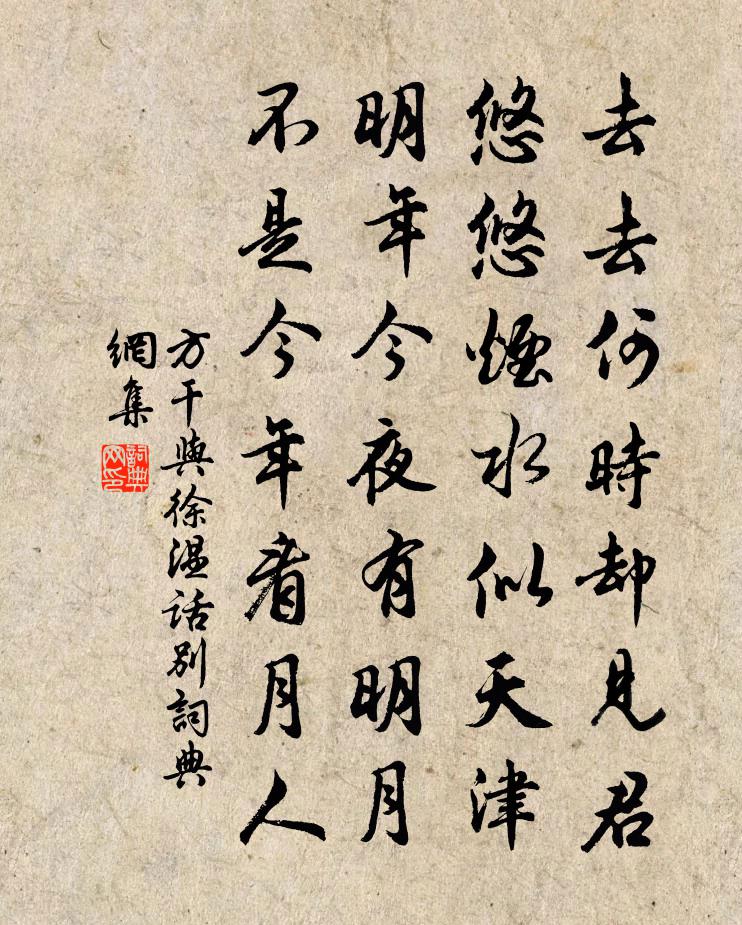 去去何時却見君
悠悠煙水似天津
明年今夜有明月
不是今年看月人
方干與徐温話別詞典
網集
詞典
网印